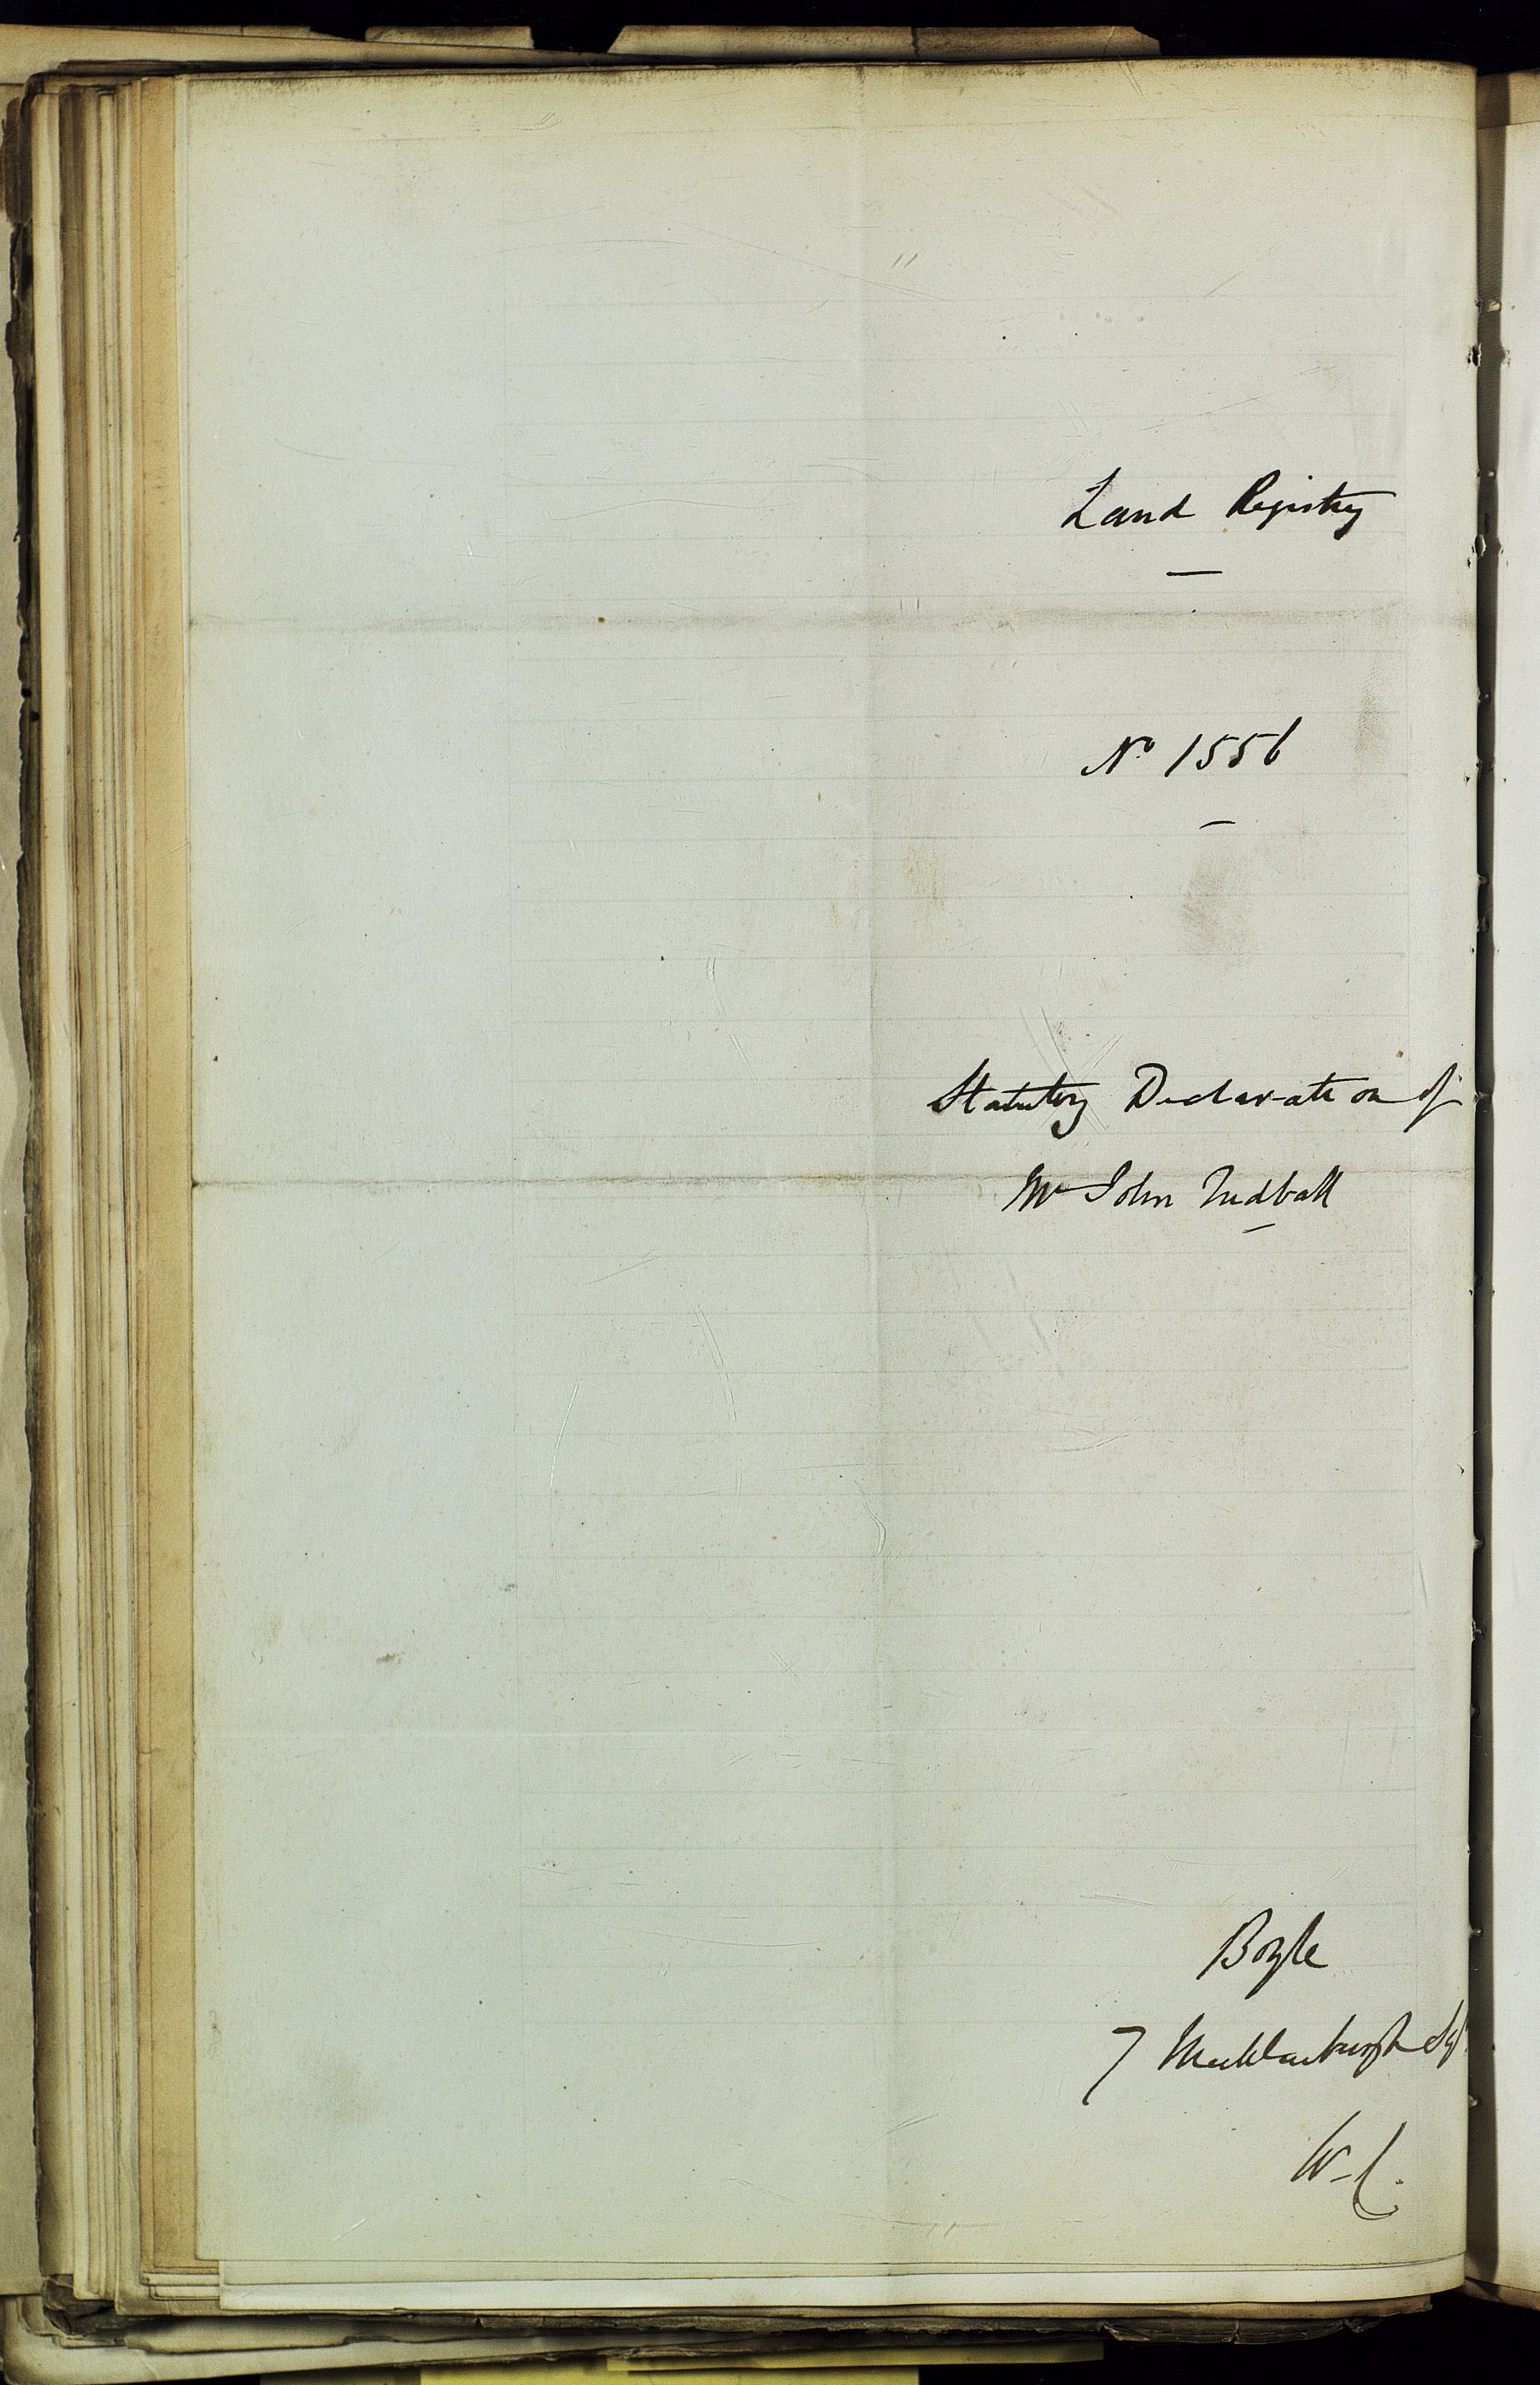 Land Registry
No 1556
Statutory Declaration of
Mr John Tudball
Boyle
7 Mecklenburgh Sqr
W.C.